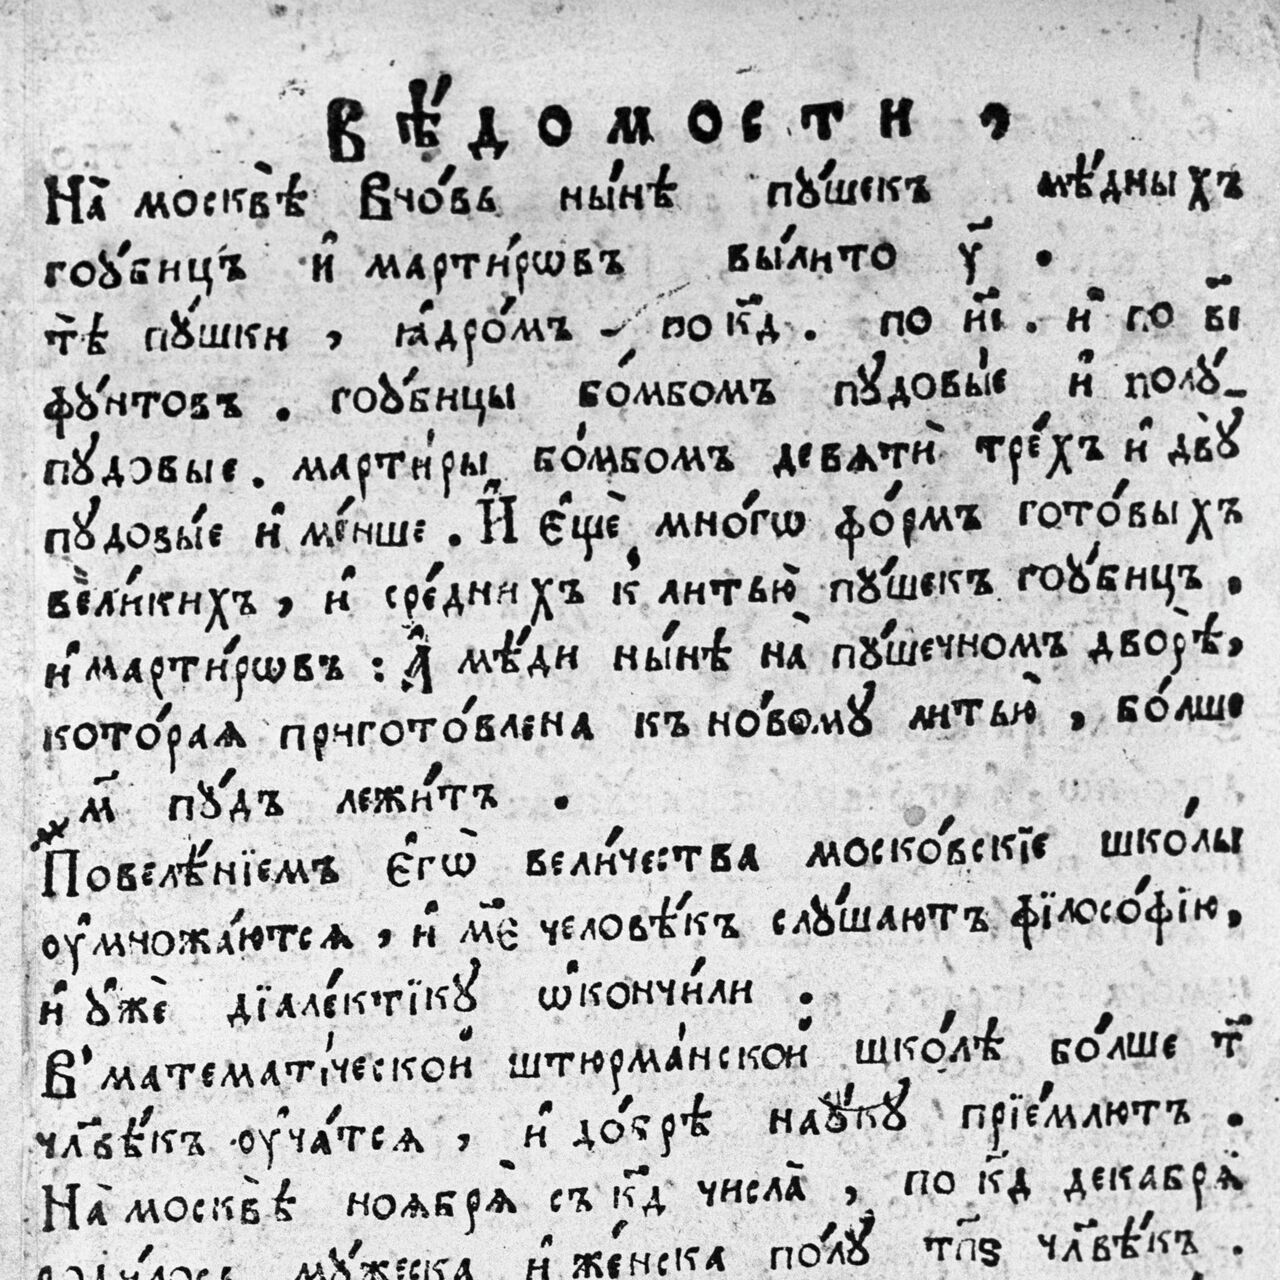 Вѣ́домости,
На̀ москвѣ̀ Вно́вь ны́нѣ пꙋ́шекъ мѣ́дныхъ
гоꙋ́бицъ и҆ марти́рѡвъ вы́лито у҃.
тѣ̀ пꙋ́шки, ꙗ҆дро́мъ - по к҃д. по и҃і. и҆ по в҃і
фꙋ́нтовъ. гоꙋ́бицы бо́мбомъ пꙋдовы́е и҆ полꙋ́-
пꙋдовые. марти́ры бо́мбомъ девѧти̇̀ тре́хъ и҆ двꙋ̀
пꙋдовы́е и҆ ме́нше. И҆ є҆щѐ мно́гѡ фо́рмъ гото́выхъ
вели́кихъ, и҆ сре́днихъ к̾ литью̀ пꙋ́шекъ гоꙋ́бицъ.
и҆ марти́рѡвъ: А҆ мѣ́ди ны́нѣ на̀ пꙋ́шечномъ дворѣ̀,
кото́раѧ пригото́влена къ но́вомꙋ литью̀, бо́лше
м҃ пꙋ́дъ лежи́тъ.
Повелѣ́нїемъ є҆гѡ̀ вели́чества моско́вскїе шко́лы
оу҆множа́ютсѧ, и҆ м҃е человѣ́къ слꙋ́шаютъ фїлосо́фїю,
и҆ ꙋ҆жѐ дїале́ктїкꙋ ѡ҆кончи́ли.
В̾ математі́ческой штюрма́нской шко́лѣ бо́лше т҃
чл҃вѣ́къ оу҆ча́тсѧ, и҆ до́брѣ наꙋ́кꙋ прїе́млютъ.
На̀ москвѣ̀ ноѧбрѧ̀ съ к҃д числа̀, по к҃д декабрѧ̀
роди́лось мꙋ́жеска и҆ же́нска по́лꙋ т҃пѕ чл҃вѣ́къ.